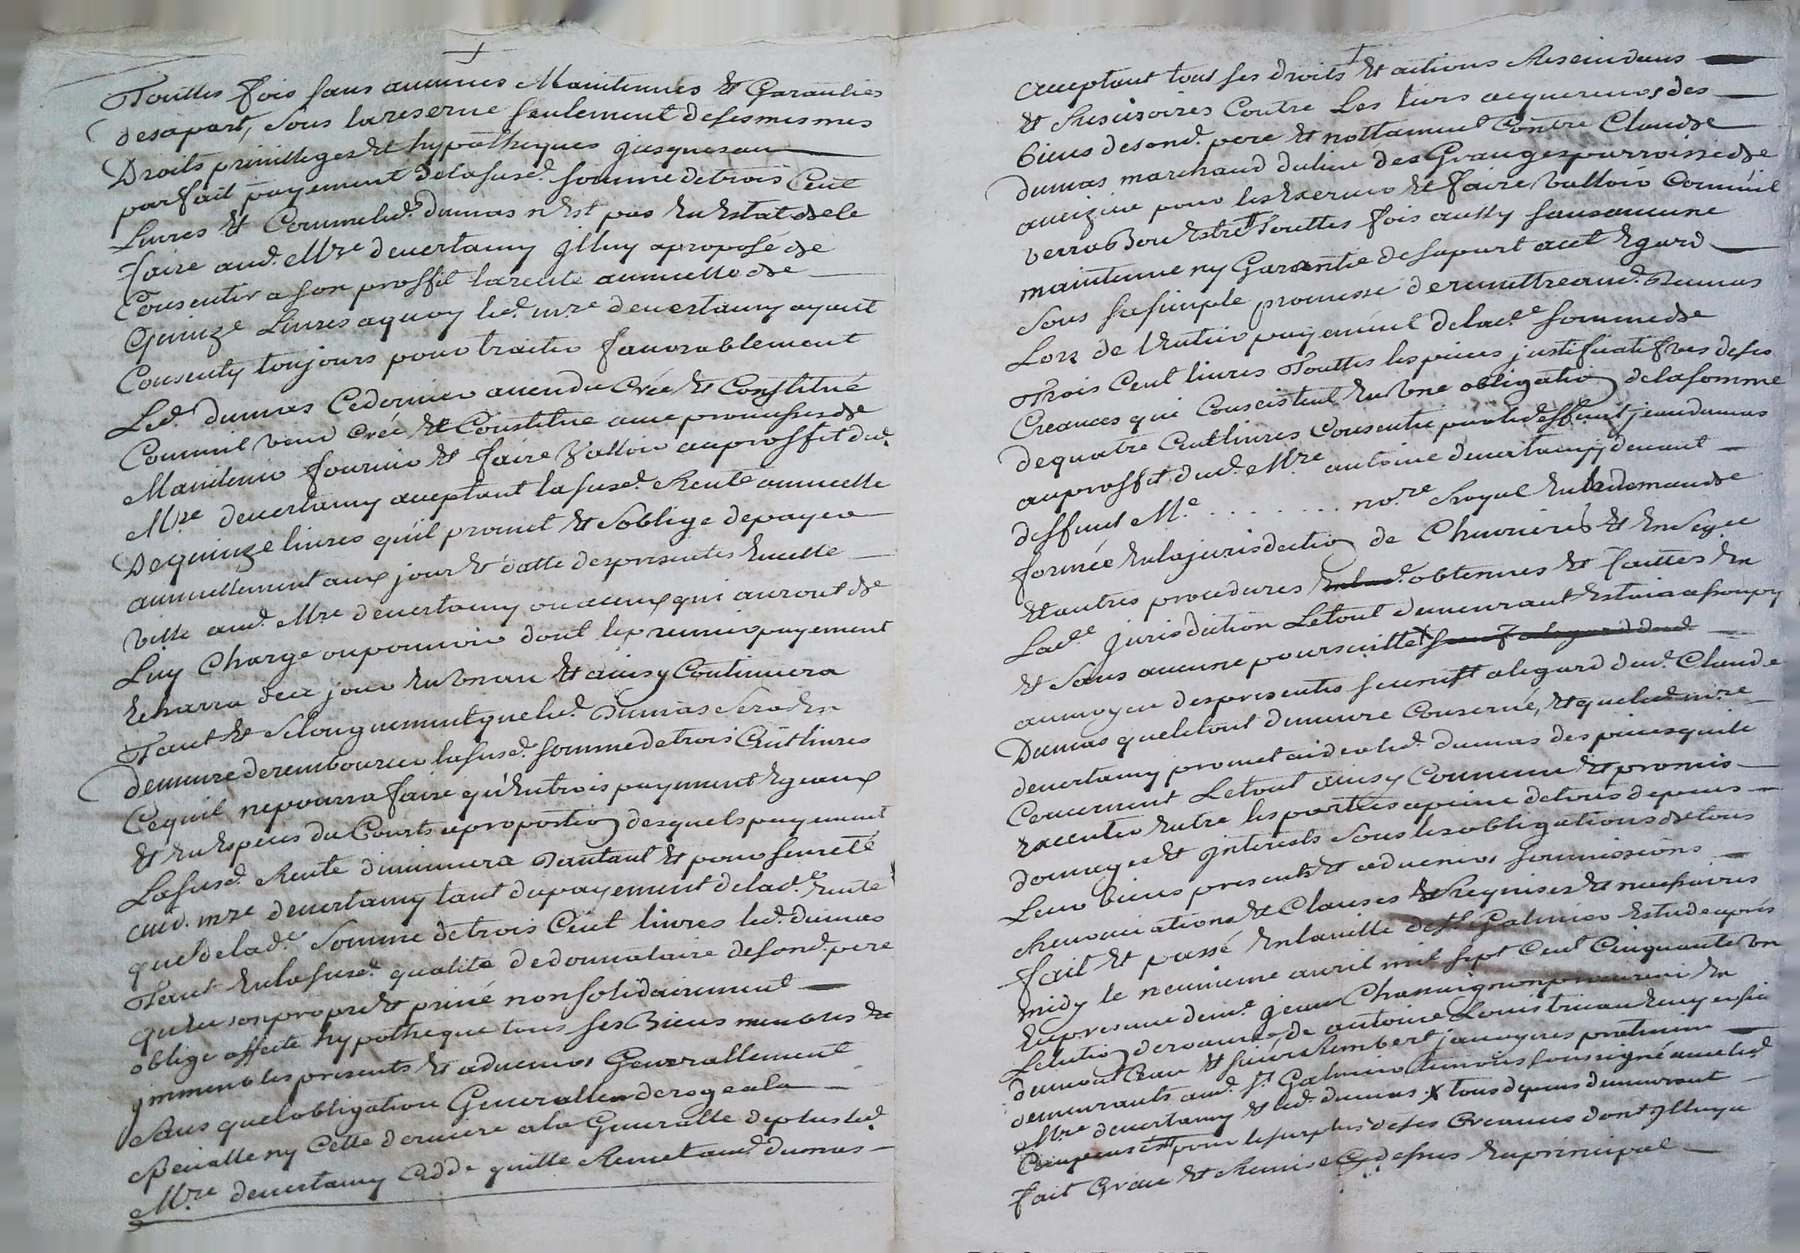 Touttes fois sans aucunes Maintennues et Garanties
desapart, sous lareserve seulement desesmesmes
Droits privilleges et hypotheques jusquesau
parfait payement delasusd. somme detrois Cent
Livres et Commeled. dumas n'Est pas En Estat dele
faire aud. Mre devertamy jlluy aproposé de
Consentir a son proffit larente annuelle de
Quinze Livres aquoy led. mre devertamy ayant
Consenty toujours pour traiter favorablement
Led. dumas Cedernier avendu Créé et Constitué
Comme il vend Créé et Constitue avec promesses de
Maintenir fournir et faire valloir auproffit dud.
Mre devertamy aceptant lasusd. Rente annuelle
Dequinze livres qu'il promet et soblige depayer
annuellement aux jour et datte des presentes Encette
ville aud. Mre devertamy ou aceux qui auront de
Luy Charge oupouvoir dont lepremier payement
Echerra dece jour En Un an et ainsy Continuera
Tant et silonguement queled. Dumas sera En
demeure derembourcer lasusd. somme detrois Cent livres
Cequil nepourra faire qu'Entrois payement Egeaux
et En Especes du Cours aproportion desquels payement
Lasusd. Rente diminuera Dautant et pour seureté
aud. mre devertamy tant dupayement delad.e rente
que delad.e somme detrois Cent livres led. dumas
Tant Enlasusd. qualité dedonnataire desond. pere
qu'En son propre et privé non solidairement
oblige affecte hypotheque tous ses Biens meubles et
jmmeubles presents et advenir Generallement
sans quel obligation Generalle deroge ala
specialle ny Cette derniere ala Generalle deplus led.
Mre devertamy Cedde quitte Remet aud. dumas
acceptant tous ses droits et actions Rescindans
et Rescisoires Contre Les tiers acquereurs des
biens desond. pere et nottamment Contre Claude
dumas marchand dulieu des Granges parroisse de
aveizieu pour les Exercer et faire valloir Comm'il
verra Bon Estre Touttes fois aussy sans aucune
maintenue ny Garentie desapart acet Egard
sous sa simple promesse deremettre aud. Dumas
Lors de l'Entier payement delad.e somme de
Trois Cent livres Touttes les pieces justificatives deses
Creances qui Consistent En Une obligation delasomme
dequatre Cent livres Consentie par led. deffunt jean dumas
auproffit dud. Mre antoine devertamy devant
deffunt Me . . . . . . . . nore Royal En la demande
formée Enlajurisdiction de Chevrieres et En segce
et autres procedures Enlad. obtenues et faittes En
Lad.e jurisdiction Letout demeurant Esteint assoupy
et sans aucune poursuitte
au moyen des presentes seument alegard dud. Claude
Dumas queletout demeure Conservé, et queled. mre
devertamy promet aider led. dumas des pieces quile
Concernent Letout ainsy Convenu et promis
Executer Entre les parties apeine detous depens
domages et jnterests sous les obligations de tous
Leur biens presents et advenir soumissions
Renonciations et Clauses Requises et necessaires
fait et passé Enlaville de St Galmier Estude aprés
midy le neuvieme avril mil sept Cent Cinquante Un
Enpresence de me jean Chavaignon procureur En
Lelection deroanne, de antoine Louis
demont et sieur Rembert praticien
demeurants aud. St Galmier temoins soussigné avec led.
Mre devertamy et led. dumas x tous depens demeurant
Compensés pour lesurplus deses Creances dont jlluy a
fait Grace et Remise Cy dessus Enprincipal